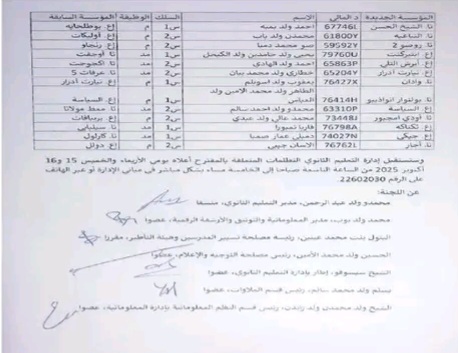 المؤسسة الجديدة د.المالي الاسم السلك الوظيفة المؤسسة السابقة
ثا. الشيخ الحسن 67746L أحمد ولد بمبه س1 م إع. بوطلحايه
ثا. الشاغبه 61800Y محمدن ولد باب س2 م ثا. أوليكات
ثا. روصو 2 59592Y صو محمد دمبا س2 م ثا. زيجاو
إع. 79760U يحيى ولد حامدين ولد الكيحل س1 مد ثا. أوجفت
إع. 65863P أحمد ولد الهادي س2 مد ثا. اكجوجت
ثا. تيارت أدرار 65204Y خطاري ولد محمد بيان س2 مد ثا. عرفات 5
ثا. وادان 76427X يعقوب ولد اسويلم س1 م إع. تيارت أدرار
ثا. بولنوار انواذيبو 76414H الطاهر ولد محمد الأمين ولد الدباس س1 م إع. السياسة
إع. السياسة 63310P محمدو ولد أحمد سالم س2 م ثا.
ثا. أودي امجبور 73448J محمد عالي ولد عبدي س2 م إع.
إع. تكتاكه 76798A فاريا تمبورا س1 مد ثا. سيليبابي
إع. جيكي 74027N دمبلي عمار صمبا س1 مد ثا.
ثا. آجار 76762L الاسان جيبي س2 م إع. دوئل
وستستقبل إدارة التعليم الثانوي التظلمات المتعلقة بالمقترح أعلاه يومي الأربعاء والخميس 15 و16
أكتوبر 2025 من الساعة التاسعة صباحا إلى الخامسة مساء بشكل مباشر في مباني الإدارة أو عبر الهاتف
على الرقم 22602030
عن اللجنة:
محمدو ولد عبد الرحمن، مدير التعليم الثانوي، منسقا
محمد ولد نوب، مدير المعلوماتية والتوثيق والأرشفة الرقمية، عضوا
البتول بنت محمد عبدي، رئيسة مصلحة تسيير المدرسين وهيئة التأطير، مقررا
الحسين ولد محمد الأمين، رئيس مصلحة التوجيه والإعلام، عضوا
الشيخ سيسوقو، إطار بإدارة التعليم الثانوي، عضوا
يسلم ولد محمد سالم، رئيس قسم، عضوا
الشيخ ولد محمدن ولد، رئيس قسم النظم المعلوماتية بإدارة المعلوماتية، عضوا